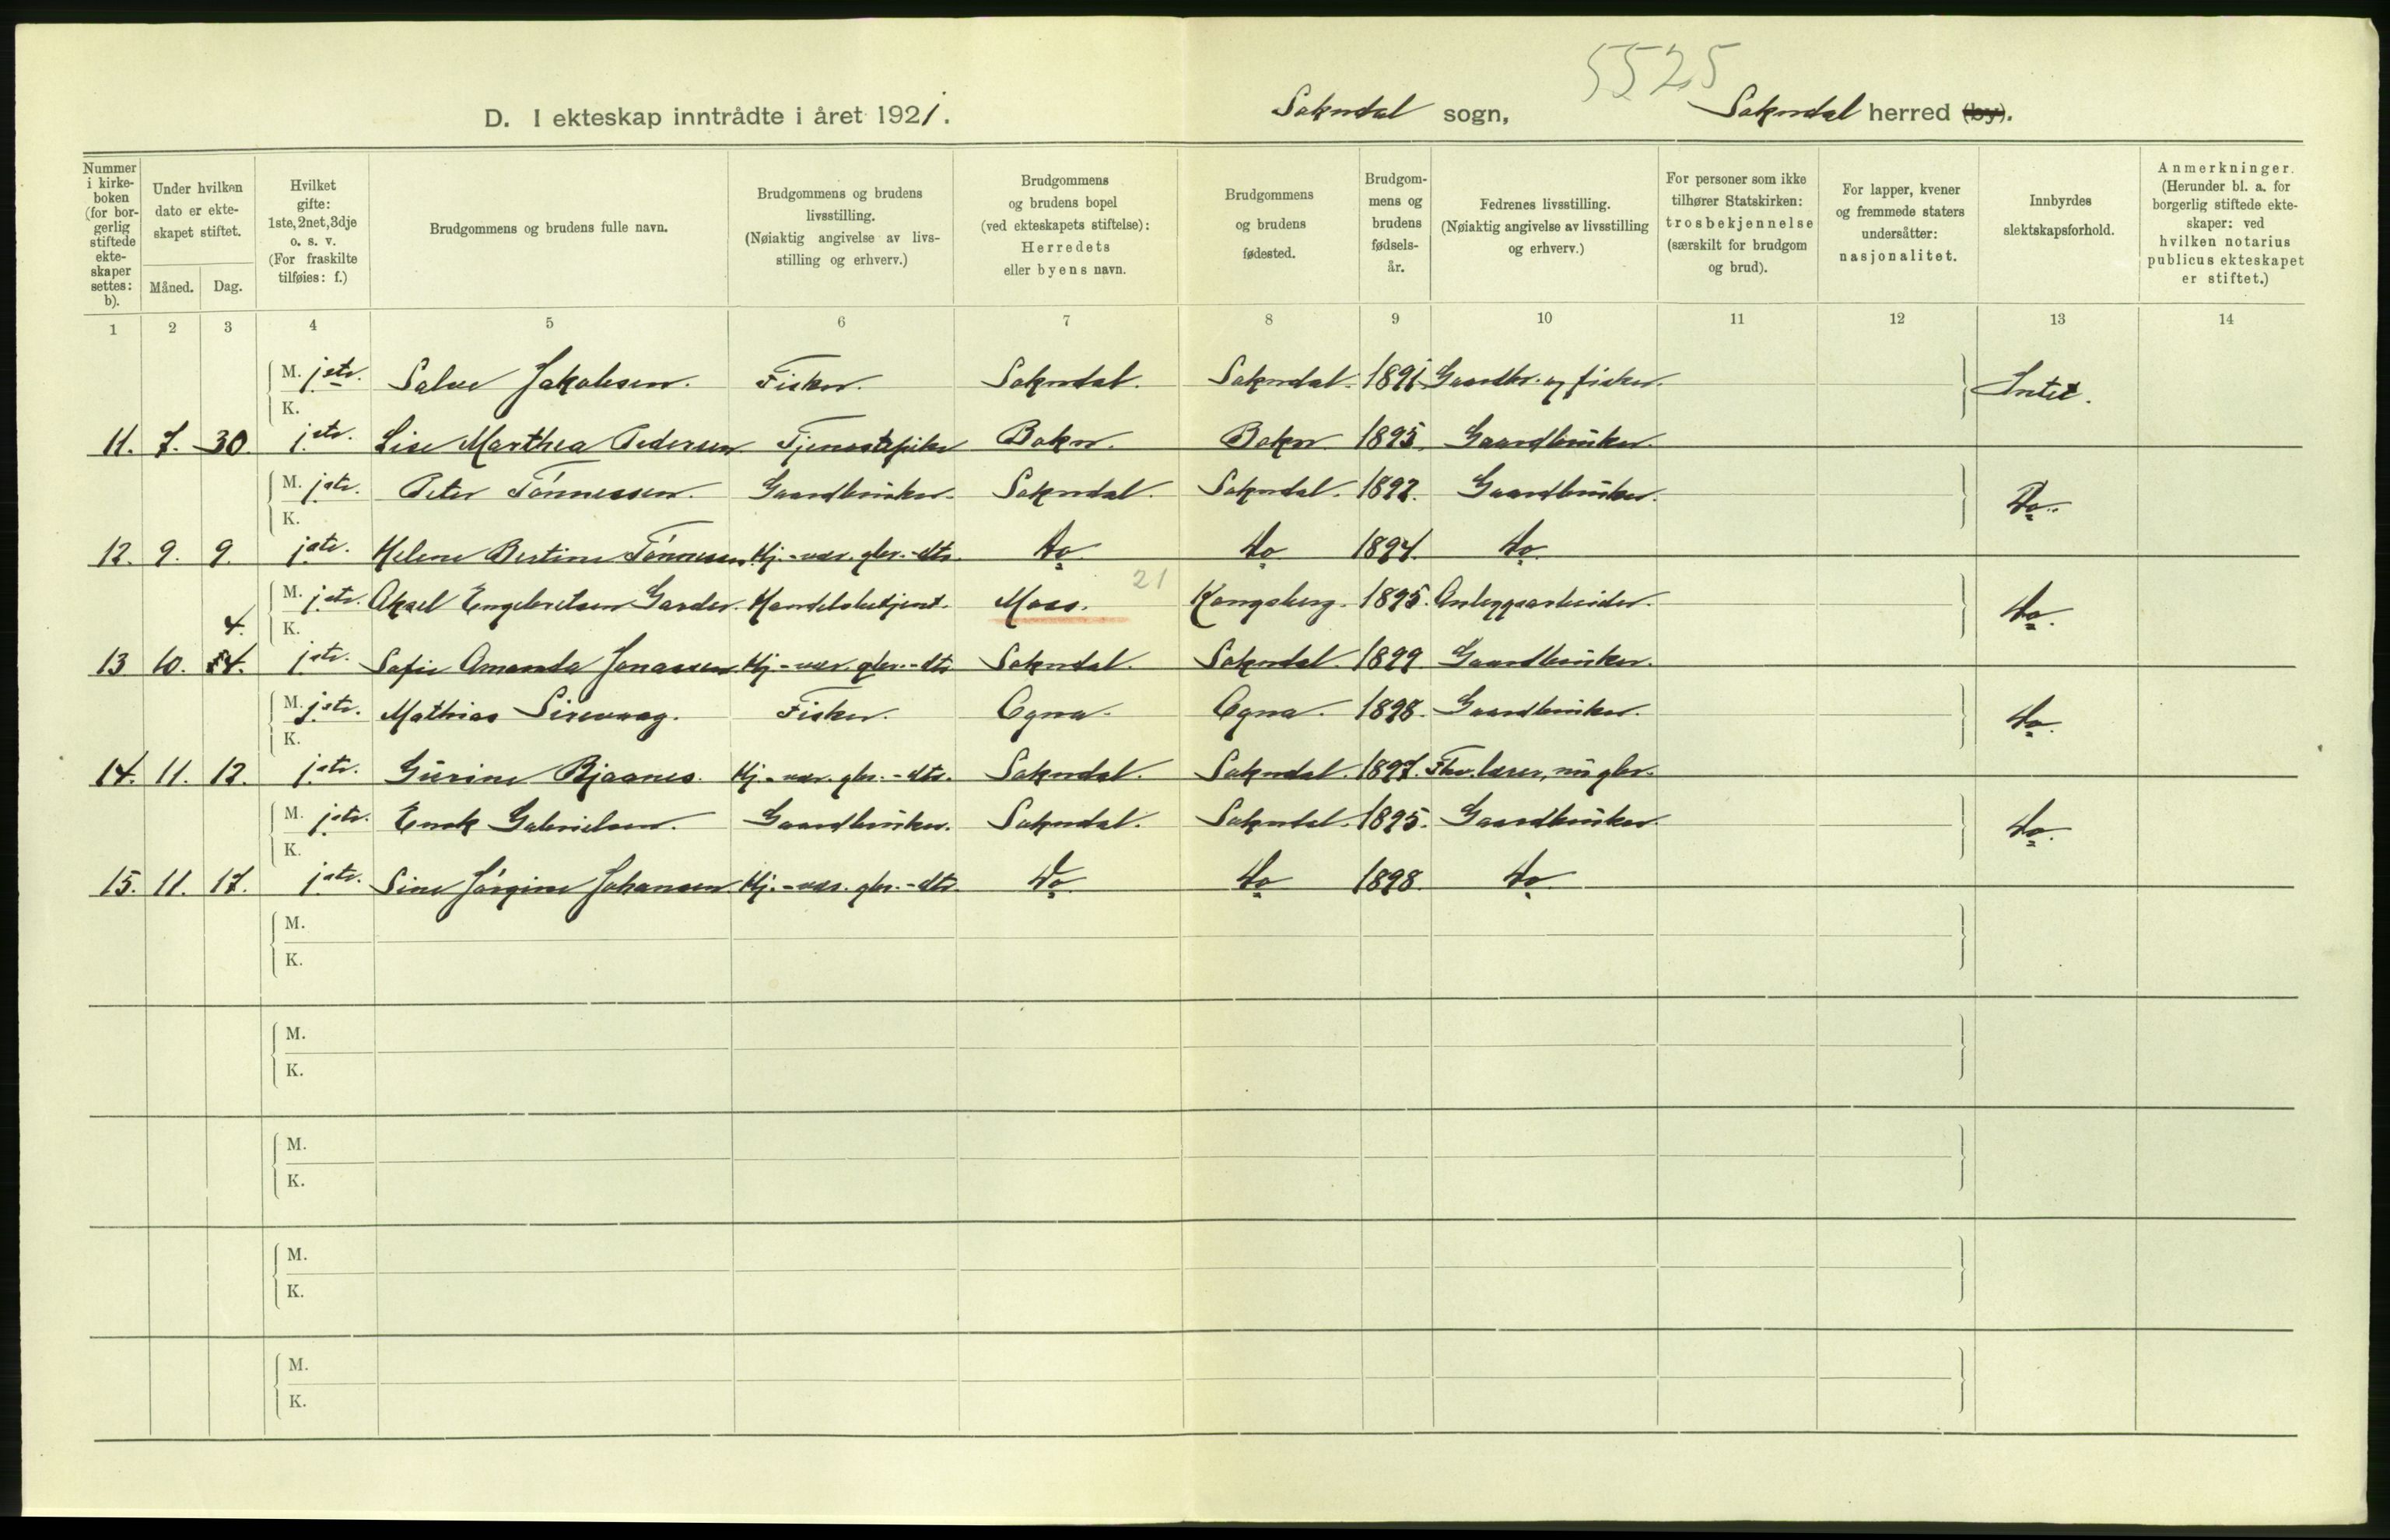 5525
D. I ekteskap inntrådte i året 1921. Sokndal sogn, Sokndal herred (by).
Nummer i kirkeboken (for borgerlig stiftede ekteskaper settes: b).
Under hvilken dato er ekteskapet stiftet.
Måned. Dag.
Hvilket gifte: 1ste, 2net, 3dje o. s. v. (For fraskilte tilføies: f.)
Brudgommens og brudens fulle navn.
Brudgommens og brudens livsstilling. (Nøiaktig angivelse av livsstilling og erhverv.)
Brudgommens og brudens bopel (ved ekteskapets stiftelse): Herredets eller byens navn.
Brudgommens og brudens fødested.
Brudgommens og brudens fødselsår.
Fedrenes livsstilling. (Nøiaktig angivelse av livsstilling og erhverv.)
For personer som ikke tilhører Statskirken: trosbekjennelse (særskilt for brudgom og brud).
For lapper, kvener og fremmede staters undersåtter: nasjonalitet.
Innbyrdes slektskapsforhold.
Anmerkninger. (Herunder bl. a. for borgerlig stiftede ekteskaper: ved hvilken notarius publicus ekteskapet er stiftet.)
1 2 3 4 5 6 7 8 9 10 11 12 13 14
M. 1ste. Salve Jakobsen. Fisker. Sokndal. Sokndal. 1891 Gaardbr. og fisker. Intet.
K.
11. 7. 30. 1ste. Lise Marthea Pedersen Tjenestepike Bokn. Bokn 1895. Gaardbruker.
M. 1ste. Peter Tönnessen. Gaardbruker. Sokndal. Sokndal. 1892. Gaardbruker. Do.
K.
12. 9. 9. 1ste. Helene Bertine Tönnesen Hj.-vær. gbr.-dtr. Do Do 1894. Do.
M. 1ste. Aksel Engebretsen Garder. Handelsbetjent. Moss. 21 Kongsberg. 1895. Anleggsarbeider. Do.
4. K.
13 10. 1ste. Sofie Amanda Jonassen Hj.-vær. gbr.-dtr Sokndal. Sokndal. 1899 Gaardbruker.
M. 1ste. Mathias Sirevaag. Fisker. Ogna. Ogna. 1898. Gaardbruker. Do.
K.
14. 11. 12. 1ste. Gurine Bjaanes. Hj.-vær. gbr.-dtr. Sokndal. Sokndal. 1897. Fhv. lærer, nu gbr.
M. 1ste. Enok Gabrielsen. Gaardbruker. Sokndal. Sokndal. 1895. Gaardbruker. Do.
K.
15. 11. 17. 1ste. Sine Jörgine Johansen Hj.-vær. gbr.-dtr. Do. Do 1898. Do.
M.
K.
M.
K.
M.
K.
M.
K.
M.
K.